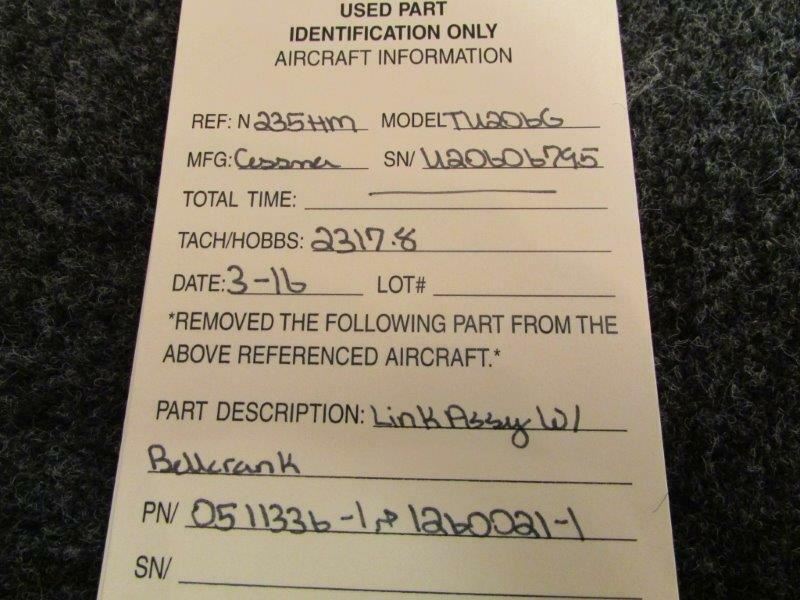 USED PART
IDENTIFICATION ONLY
AIRCRAFT INFORMATION
REF: N 235HM MODEL TU206G
MFG: Cessna SN/ U20606795
TOTAL TIME:
TACH/HOBBS: 2317.8
DATE: 3-16 LOT#
*REMOVED THE FOLLOWING PART FROM THE
ABOVE REFERENCED AIRCRAFT.*
PART DESCRIPTION: Link Assy W/
Bellcrank
PN/ 0511336-1 & 1260021-1
SN/